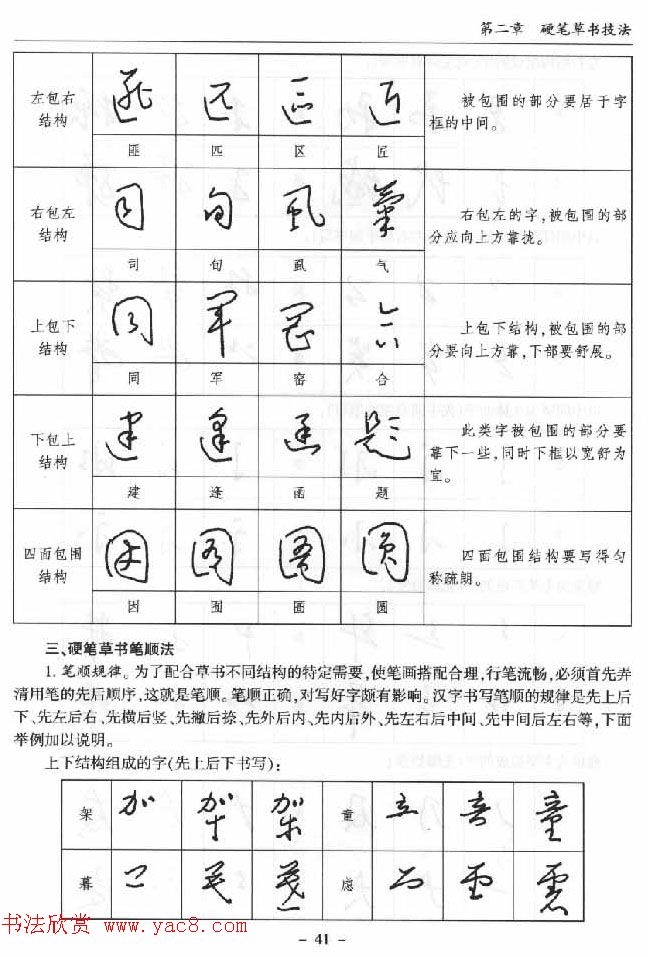 第二章 硬笔草书技法
左包右
结构
匪 匹 区 匠
被包围的部分要居于字
框的中间。
右包左
结构
司 旬 虱 气
右包左的字，被包围的部
分应向上方靠拢。
上包下
结构
同 军 窑 合
上包下结构，被包围的部
分要向上方靠，下部要舒展。
下包上
结构
建 逢 函 题
此类字被包围的部分要
靠下一些，同时下框以宽舒为
宜。
四面包围
结构
因 囿 圄 圆
四面包围结构要写得匀
称疏朗。
三、硬笔草书笔顺法
1. 笔顺规律。为了配合草书不同结构的特定需要，使笔画搭配合理，行笔流畅，必须首先弄
清用笔的先后顺序，这就是笔顺。笔顺正确，对写好字颇有影响。汉字书写笔顺的规律是先上后
下、先左后右、先横后竖、先撇后捺、先外后内、先内后外、先左右后中间、先中间后左右等，下面
举例加以说明。
上下结构组成的字（先上后下书写）：
架 童
暮 虑
书法欣赏 www.yac8.com
- 41 -